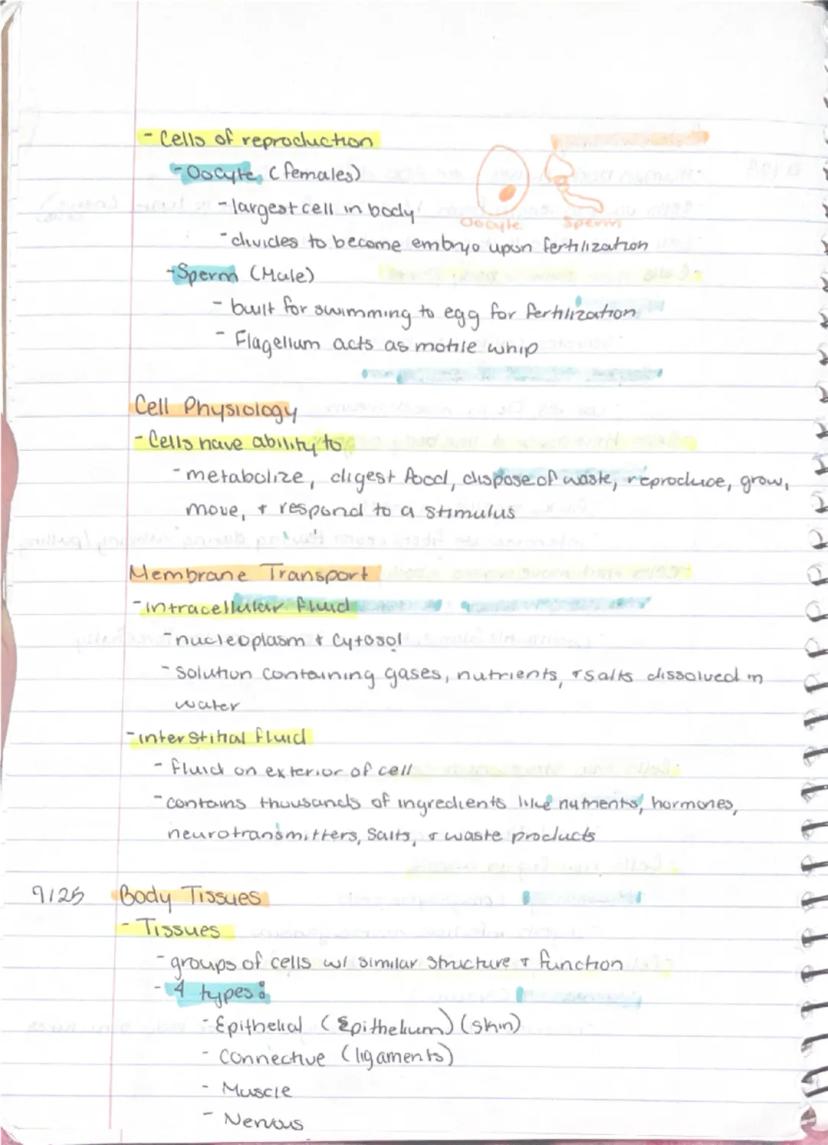 - Cells of reproduction
- Oocyte (females)
- largest cell in body
Oocyte Sperm
- divides to become embryo upon fertilization
- Sperm (Male)
- built for swimming to egg for fertilization
- Flagellum acts as motile whip
Cell Physiology
- Cells have ability to
- metabolize, digest food, dispose of waste, reproduce, grow,
move, + respond to a stimulus
Membrane Transport
- intracellular fluid
- nucleoplasm + cytosol
- solution containing gases, nutrients, + salts dissolved in
water
- interstitial fluid
- fluid on exterior of cell
- contains thousands of ingredients like nutrients, hormones,
neurotransmitters, salts, + waste products
9/25 Body Tissues
- Tissues
- groups of cells w/ similar structure + function
- 4 types:
- Epithelial (Epithelium) (skin)
- Connective (ligaments)
- Muscle
- Nervous